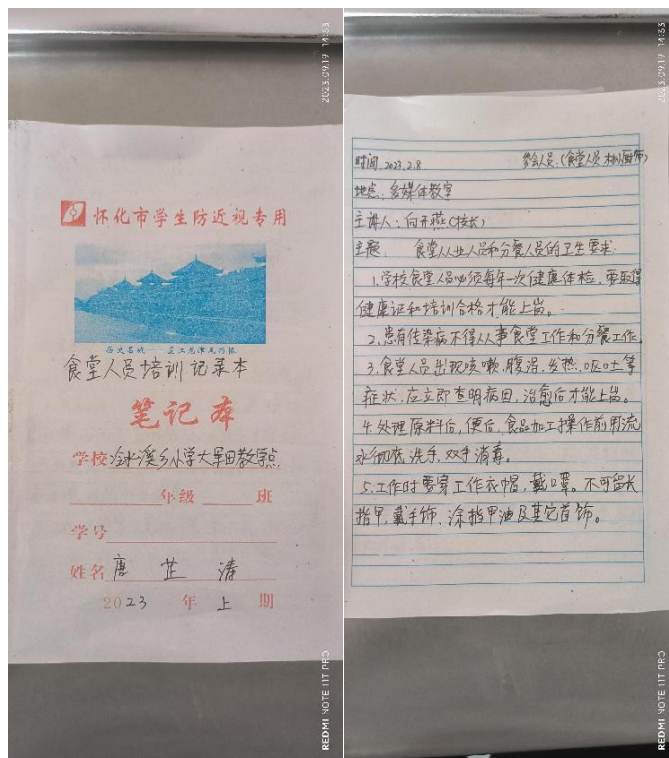 怀化市学生防近视专用
食堂人员培训记录本
笔记本
学校 冷水溪乡小学大军田教学点
年级 班
学号
姓名 唐芷涛
2023 年 上 期
REDMI NOTE 11T PRO
2023.09.19 14:33
时间 2023.2.8 参会人员:(食堂人员
地点: 多媒体教室
主讲人: 向开燕(校长)
主题 食堂从业人员和分餐人员的卫生要求
1.学校食堂人员必须每年一次健康体检,要取得
健康证和培训合格才能上岗。
2.患有传染病不得从事食堂工作和分餐工作.
3.食堂人员出现咳嗽.腹泻,发热.呕吐等
症状,应立即查明病因,治愈后才能上岗。
4.处理原料后,便后,食品加工操作前用流
水彻底洗手,双手消毒。
5.工作时要穿工作衣帽,戴口罩。不可留长
指甲,戴手饰、涂指甲油及其它首饰。
REDMI NOTE 11T PRO
2023.09.19 14:33